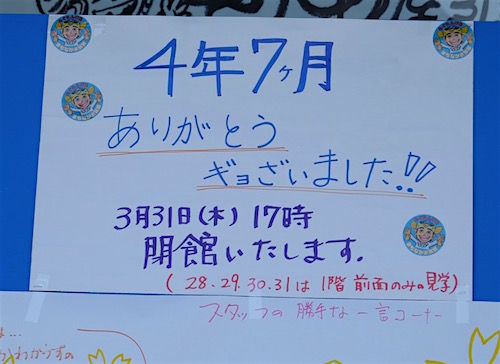 4年7ヶ月
ありがとう
ギョざいました!!
3月31日(木) 17時
閉館いたします.
( 28.29.30.31は 1階 前面のみの見学)
スタッフの 勝手な 一言コーナー
わからずの